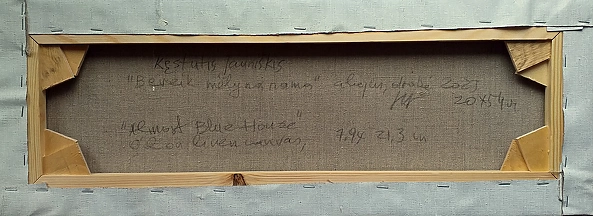 Kęstutis Jauniškis
"Beveik mėlynas namas" aliejus, drobė 2021
20x54cm
"Almost Blue House"
oil on linen canvas, 7.9x 21,3 in